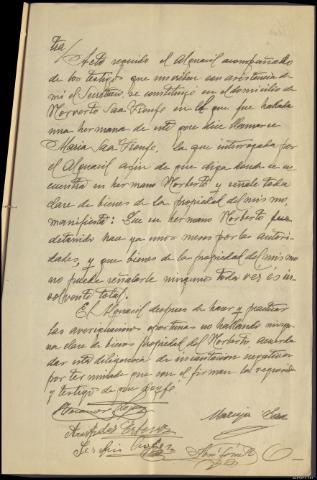 tra/
Acto seguido el Alguacil acompañado
de los testigos que suscriben con asistencia de
mi el Secretario, se constituyó en el domicilio de
Norberto Saa Fronfe en el que fue hallada
una hermana de este que dice llamarse
Maria Saa Fronfe, la que interrogada por
el Alguacil afin de que diga donde se en
cuentra su hermano Norberto y señale toda
clase de bienes de la propiedad del mismo,
manifiesta: Que su hermano Norberto fue
detenido hace ya unos meses por las autori
dades, y que bienes de la propiedad del mismo
no puede señalarle ninguno toda vez es in
solvente total.
El Alguacil despues de hacer y practicar
las averiguaciones oportunas no hallando ningu
na clase de bienes propiedad del Norberto, acuerda
dar esta diligencia de incautacion negativa
por terminada que con el firman la requerida
y testigos de que certifico
Maruja Saa